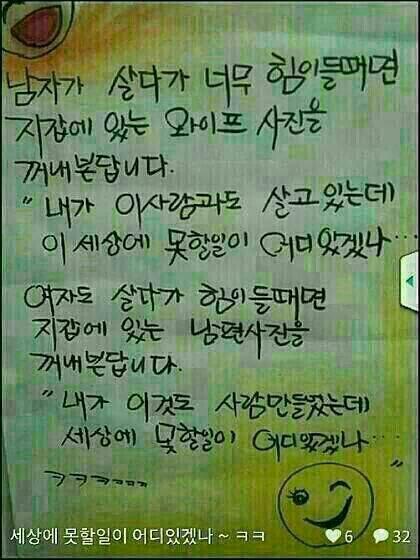 남자가 살다가 너무 힘이들때면
지갑에 있는 와이프 사진을
꺼내본답니다.
"내가 이사람과도 살고있는데
이 세상에 못할일이 어디있겠나…
여자도 살다가 힘이들때면
지갑에 있는 남편사진을
꺼내본답니다.
"내가 이것도 사람만들었는데
세상에 못할일이 어디있겠나…"
ㅋㅋㅋㅋㅋㅋ
세상에 못할일이 어디있겠나 ~ ㅋㅋ
6
32